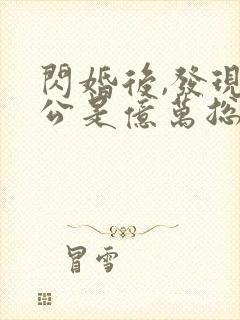 閃婚後,發現
公是億萬總
冒雪